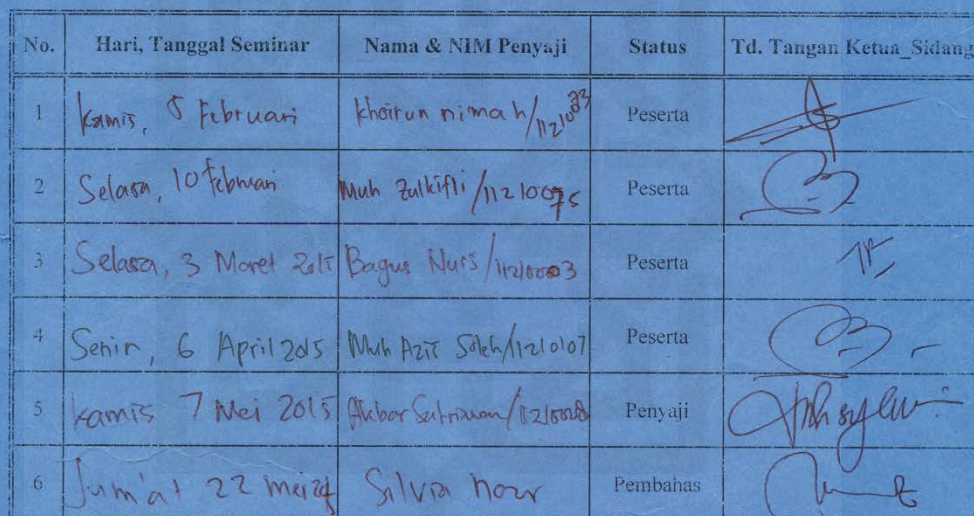 No. Hari, Tanggal Seminar Nama & NIM Penyaji Status Td. Tangan Ketua_Sidang
1 Kamis, 5 Februari Khoirun nimah/11210073 Peserta
2 Selasa, 10 Februari Muh Zulkifli/11210075 Peserta
3 Selasa, 3 Maret 2015 Bagus Nurs/11210003 Peserta
4 Senin, 6 April 2015 Muh Aziz Soleh/11210107 Peserta
5 Kamis 7 Mei 2015 Akbar Penyaji
6 Jum'at 22 mei Silvia nour Pembahas